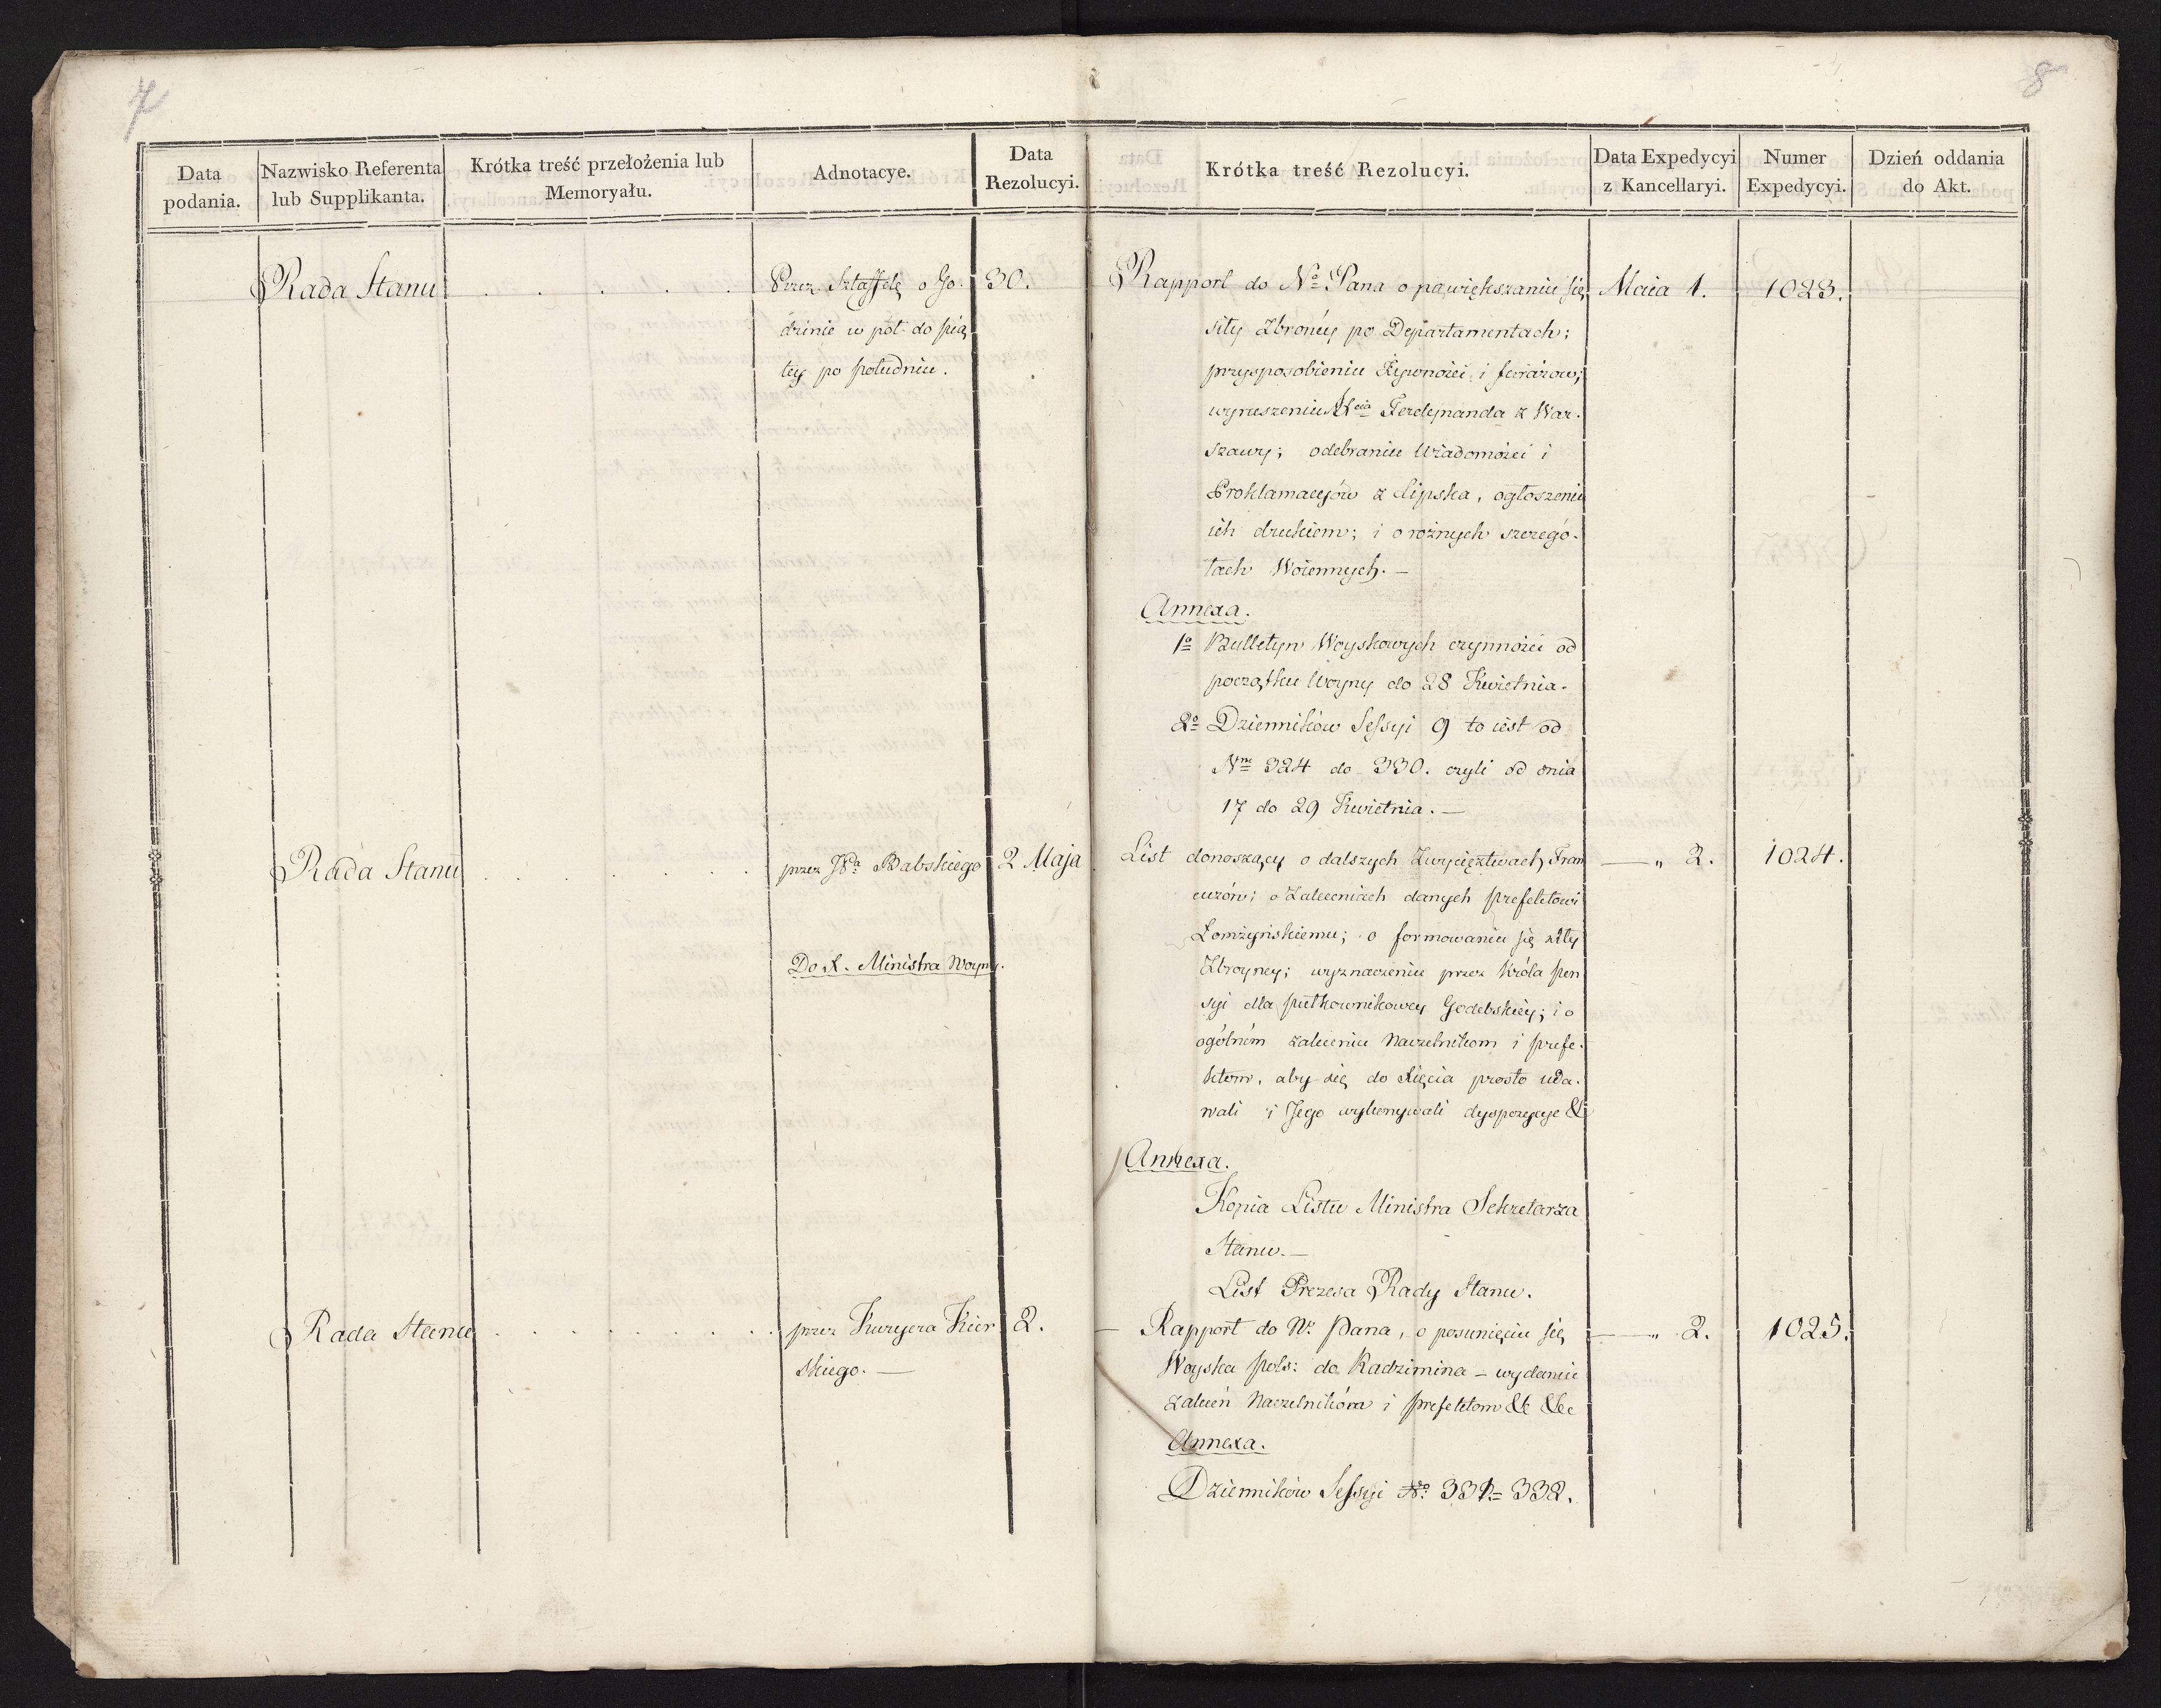 7
8
Data podania.
Nazwisko Referenta lub Supplikanta.
Krótka treść przełożenia lub Memoryału.
Adnotacye.
Data Rezolucyi.
Krótka treść Rezolucyi.
Data Expedycyi z Kancellaryi.
Numer Expedycyi.
Dzień oddania do Akt.
Rada Stanu . . . . . Przez Sztaffetę o Go- 30.
dzinie w pół do pią
tey po południu.
Rapport do No Pana o powiększaniu się Maia 1. 1023.
siły zbroney po Departamentach;
przysposobieniu Żywności i furażow;
wyruszeniu Xcia Ferdynanda z War-
szawy; odebraniu Wiadomości i
Proklamacyów z Lipska, ogłoszeniu
ich drukiem; i o rożnych szczegó-
łach Woiennych. —
Annexa.
1o Bulletyn Woyskowych czynności od
początku Woyny do 28 Kwietnia.
2o Dzienników Sessyi 9 to iest od
Nru 324 do 330. czyli od dnia
17 do 29 Kwietnia. —
Rada Stanu . . . . . . . przez JPa Babskiego 2 Maja
Do X. Ministra Woyny.
List donoszący o dalszych Zwycięztwach Fran — „ 2. 1024.
cuzów; o Zaleceniach danych prefektowi
Łomżyńskiemu; o formowaniu się siły
Zbroyney; wyznaczeniu przez Króla pen
syi dla pułkownikowey Godebskiey; i o
ogólnem zaleceniu Naczelnikom i prefe-
ktom, aby się do Xięcia prosto uda-
wali i Jego wykonywali dyspozycye &
Annexa.
Kopia Listu Ministra Sekretarza
Stanu. —
List Prezesa Rady Stanu.
Rada Stanu . . . . . . . przez Kuryera Kier 2.
skiego. —
— Rapport do No Pana, o posunięciu się — „ 2. 1025.
Woyska pols: do Radzimina — wydaniu
zaleceń Naczelnikóm i prefektom &c &c
Annexa.
Dzienników Sessyi No 331 = 332.